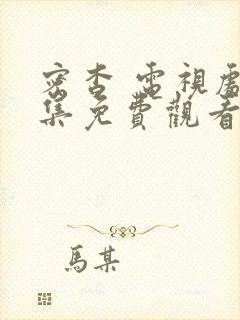 密杏 電視處
集免費觀看
馬某